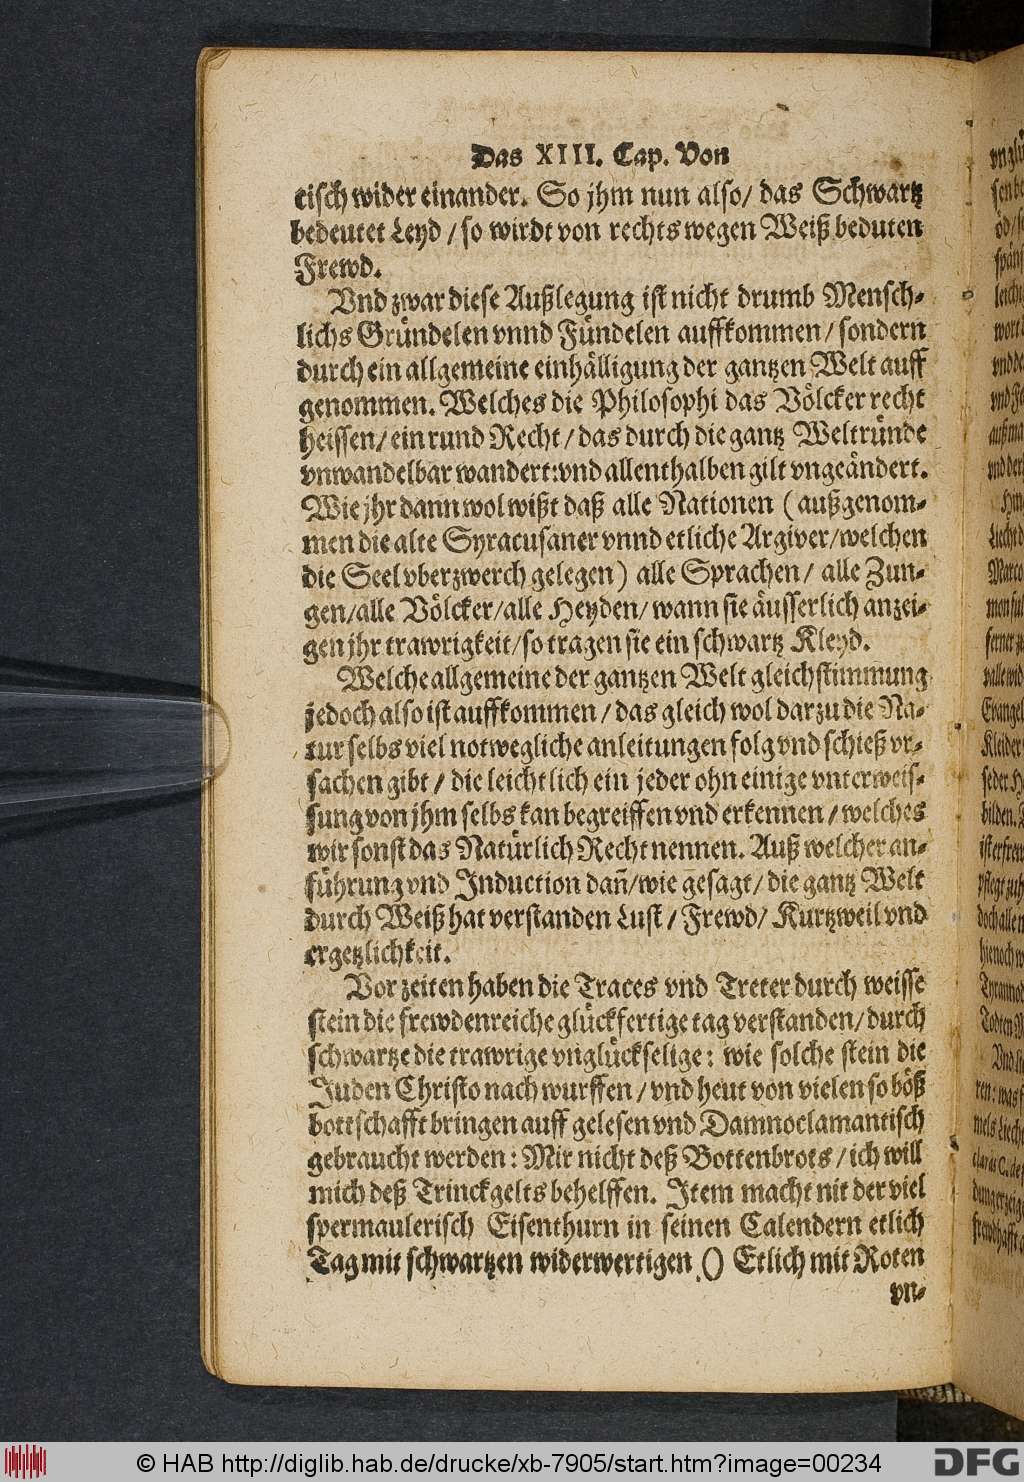 Das XIII. Cap. Von
tisch wider einander. So jhm nun also/ das Schwartz
bedeutet Leyd / so wirdt von rechts wegen Weiß beduten
Frewd.
Vnd zwar diese Außlegung ist nicht drumb Mensch-
lichs Gründelen vnnd Fündelen auffkommen / sondern
durch ein allgemeine einhälligung der gantzen Welt auff
genommen. Welches die Philosophi das Völcker recht
heissen/ ein rund Recht / das durch die gantz Weltründe
vnwandelbar wandert: vnd allenthalben gilt vngeändert.
Wie jhr dann wol wißt daß alle Nationen (außgenom-
men die alte Syracusaner vnnd etliche Argiver/welchen
die Seel vberzwerch gelegen) alle Sprachen / alle Zun-
gen/alle Völcker/alle Heyden/ wann sie äusserlich anzei-
gen jhr trawrigkeit/so tragen sie ein schwartz Kleyd.
Welche allgemeine der gantzen Welt gleichstimmung
jedoch also ist auffkommen / das gleich wol darzu die Na-
tur selbs viel notwegliche anleitungen folg vnd schieß vr-
sachen gibt / die leichtlich ein jeder ohn einige vnterweis-
sung von jhm selbs kan begreiffen vnd erkennen / welches
wir sonst das Natürlich Recht nennen. Auß welcher an-
führung vnd Induction dañ/wie gesagt/ die gantz Welt
durch Weiß hat verstanden Lust / Frewd/ Kurtzweil vnd
ergetzlichkeit.
Vor zeiten haben die Traces vnd Treter durch weisse
stein die frewdenreiche glückfertige tag verstanden/ durch
schwartze die trawrige vnglückselige: wie solche stein die
Juden Christo nach wurffen / vnd heut von vielen so böß
bottschafft bringen auff gelesen vnd Damnoclamantisch
gebraucht werden: Mir nicht deß Bottenbrots / ich will
mich deß Trinckgelts behelffen. Item macht nit der viel
spermaulerisch Eisenthurn in seinen Calendern etlich
Tag mit schwartzen widerwertigen () Etlich mit Roten
vn-
© HAB http://diglib.hab.de/drucke/xb-7905/start.htm?image=00234
DFG